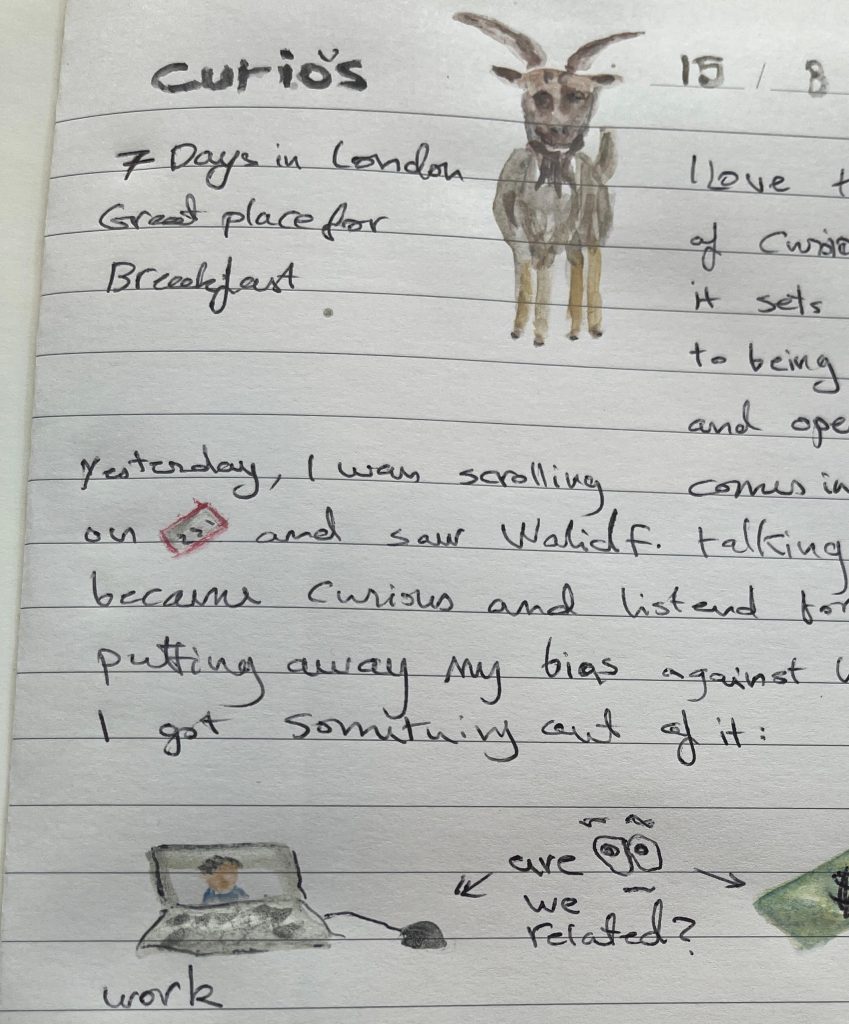 curio's
15 / 8
7 Days in London
Great place for
Breakfast
I Love
of
it sets
to being
and
Yesterday, I was scrolling
comes in
on and saw Walid F. talking
became curious and listend for
putting away my bias against
I got somthing out of it:
are
we
related?
$
work